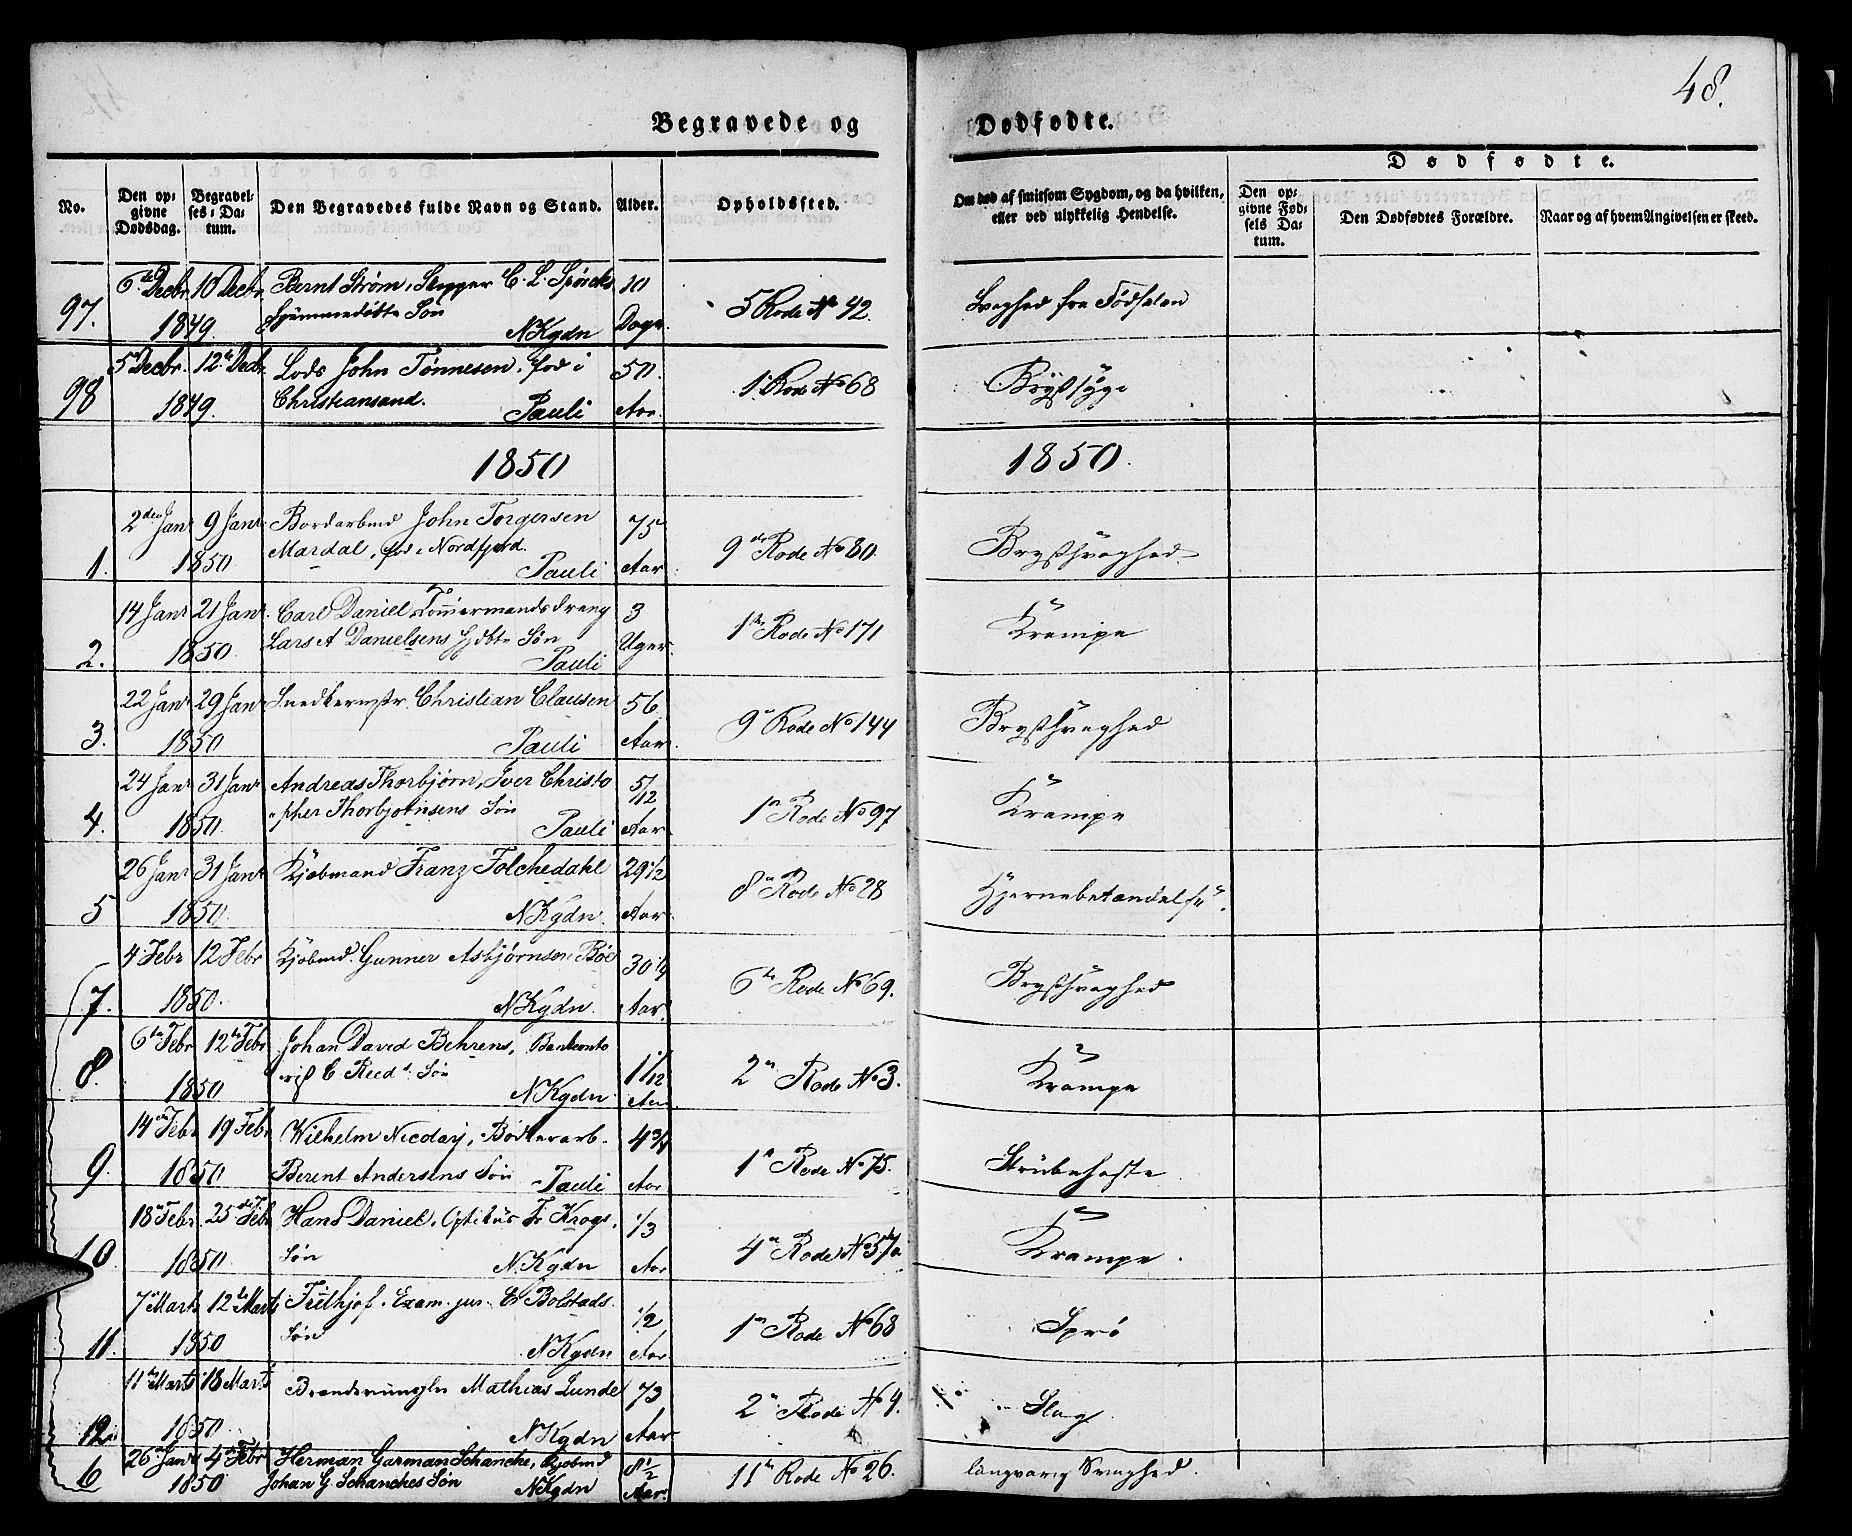 48.
Begravede og Dødfødte.
Dødfødte.
No.
Den opgivne Dødsdag.
Begravelses-Datum.
Den Begravedes fulde Navn og Stand.
Alder.
Opholdssted.
Om død af smitsom Sygdom, og da hvilken, eller ved ulykkelig Hendelse.
Den opgivne Fødsels Datum.
Den Dødfødtes Forældre.
Naar og af hvem Angivelsen er skeed.
6te Decbr 10 Decbr Bernt Strøm, C. L. 10
97. 1849. hjemmedøbte Søn NKgdn Dage 5 Rode No 42. Svaghed fra Fødselen
5 Decbr. 12te Decbr. Lods John Tønnesen, fød i 50
98 1849. Christiansand. Pauli Aar. 1 Rode No 68 Brystsyge
1850 1850.
2den Janr 9 Janr Bordarbmd John Torgersen 75
1. 1850. Mardal, fød i Nordfjord. Pauli Aar. 9de Rode No 80. Brystsvaghed.
14 Janr 21 Janr. Carl Daniel, Tømmermandsdreng 3
2. 1850. Lars A Danielsens hjdbte Søn Pauli Uger. 1te Rode No 171 Krampe
22 Janr 29 Janr Snedkermstr. Christian Clausen 56
3. 1850 Pauli Aar. 9de Rode No 144 Brystsvaghed
24 Janr 31 Janr Andreas Thorbjørn, Iver Christo 5/12
4. 1850. pher Thorbjørnsens Søn Pauli Aar. 1n Rode No 97 Krampe
26 Janr 31 Janr Kjøbmand Franz Folchedahl 29 1/2
5 1850. NKgdn. Aar. 8de Rode No 28 Hjernebetændelse.
4 Febr 12 Febr Kjøbmd. Gunner Asbjørnsen Bøe 30 1/4
7. 1850. NKgdn. Aar. 6te Rode No 69. Brystsvaghed
6te Febr 12te Febr Johan David Behrens, Bankconto
8. 1850 rist C Søn NKgdn. 1/12 Aar 2n Rode No 3. Krampe
14 Febr 19 Febr Wilhelm Nicolay, Bødkerarb. 4 3/4
9. 1850 Berent Andersens Søn Pauli Aar 1n Rode No 75. Strubehoste
18 Febr. 25de Febr Hans Daniel, Fr Krogs. 1/3
10. 1850. Søn NKgdn Aar 4n Rode Krampe.
7 Marts 12te Marts Frithjof, Exam. jur. Bolstads 1/2
11. 1850 Søn NKgdn Aar. 1n Rode No 68
11te Marts 18 Marts Mathias Lunde 73
12. 1850 NKgdn Aar. 2n Rode No 4. Slag
26 Janr 4 Febr Herman Garman Schanche, Kjøbmd 8 1/2
6 1850 Johan G. Schanches Søn NKgdn Aar. 11te Rode No 26. langvarig Svaghed.